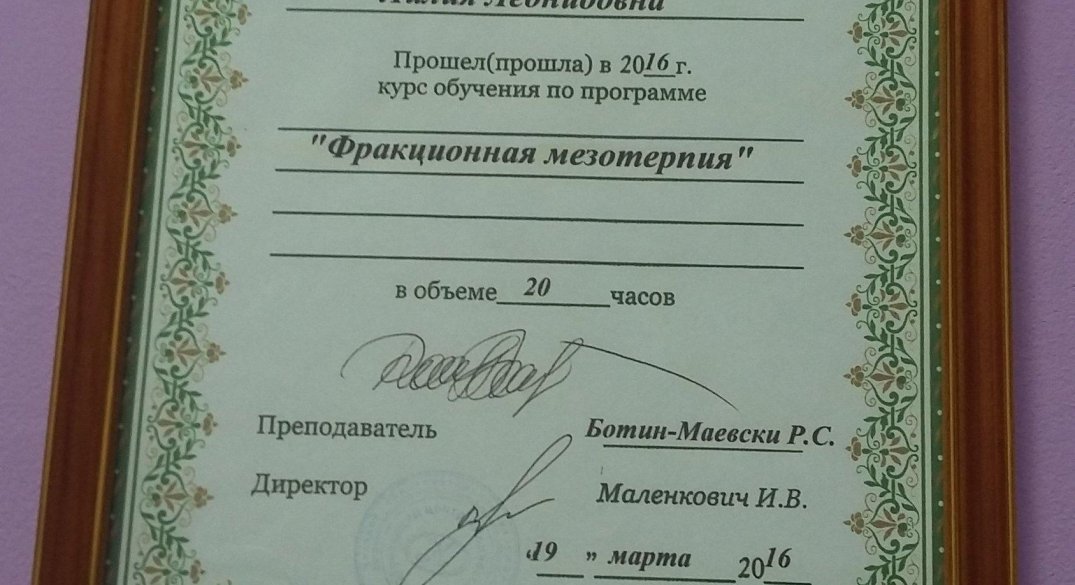 Леонидовна
Прошел(прошла) в 2016 г.
курс обучения по программе
"Фракционная мезотерпия"
в объеме 20 часов
Преподаватель Ботин-Маевски Р.С.
Директор Маленкович И.В.
«19 » марта 2016